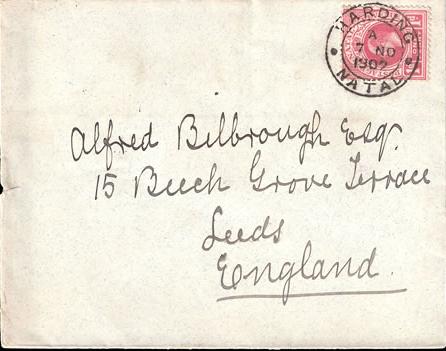 HARDING
A
7 NO
1902
NATAL
Alfred Bilbrough Esq.
15 Beech Grove Terrace
Leeds
England.